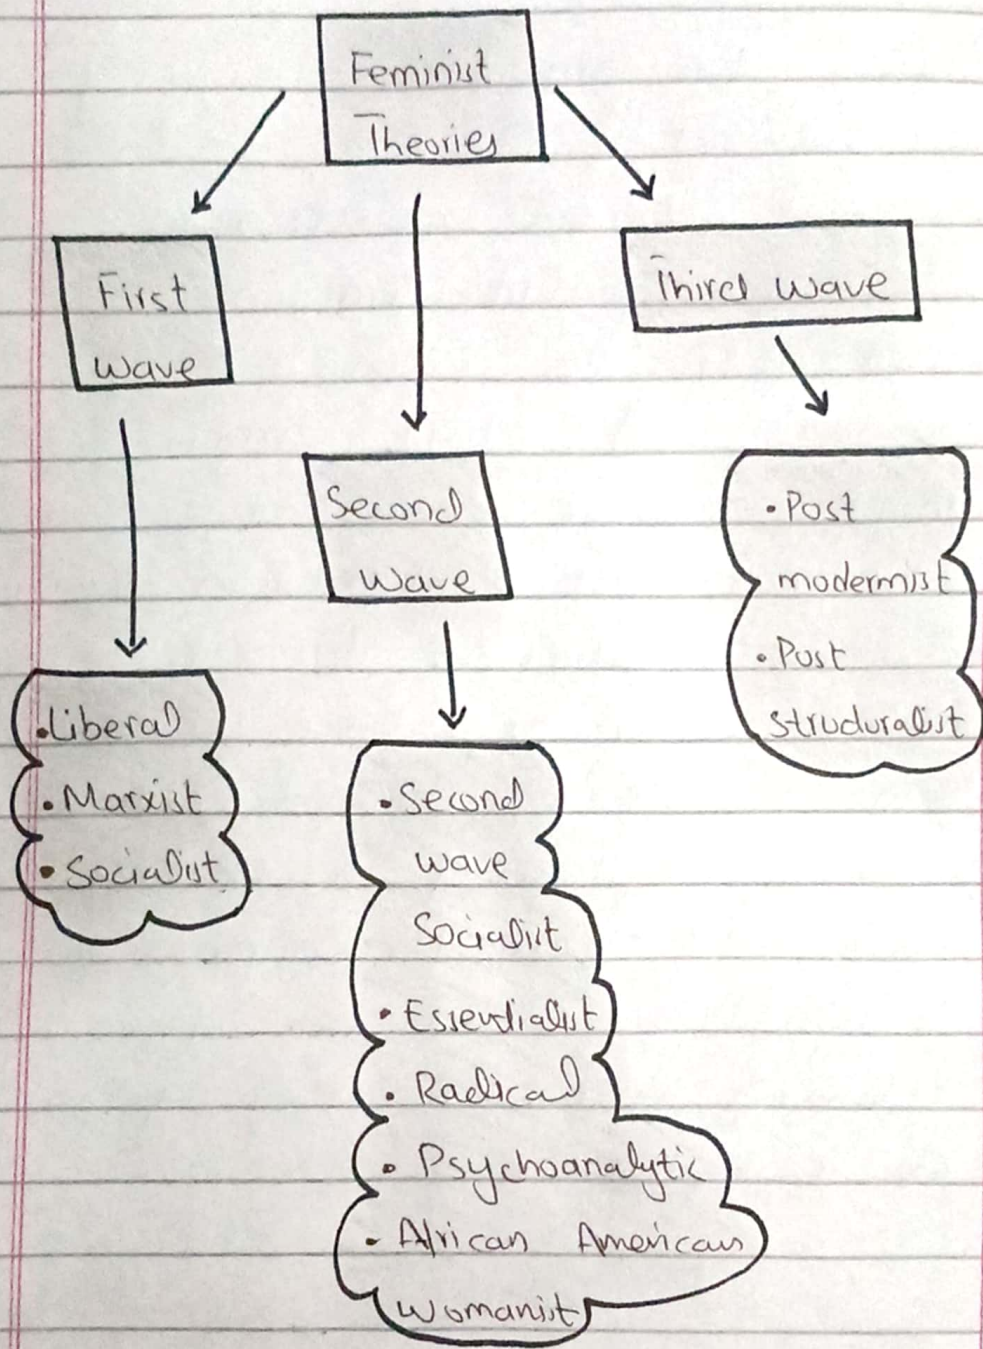 Feminist
Theories
First
Wave
Second
Wave
Third Wave
• Liberal
• Marxist
• Socialist
• Second
wave
Socialist
• Essentialist
• Radical
• Psychoanalytic
• African American
Womanist
• Post
modernist
• Post
structuralist